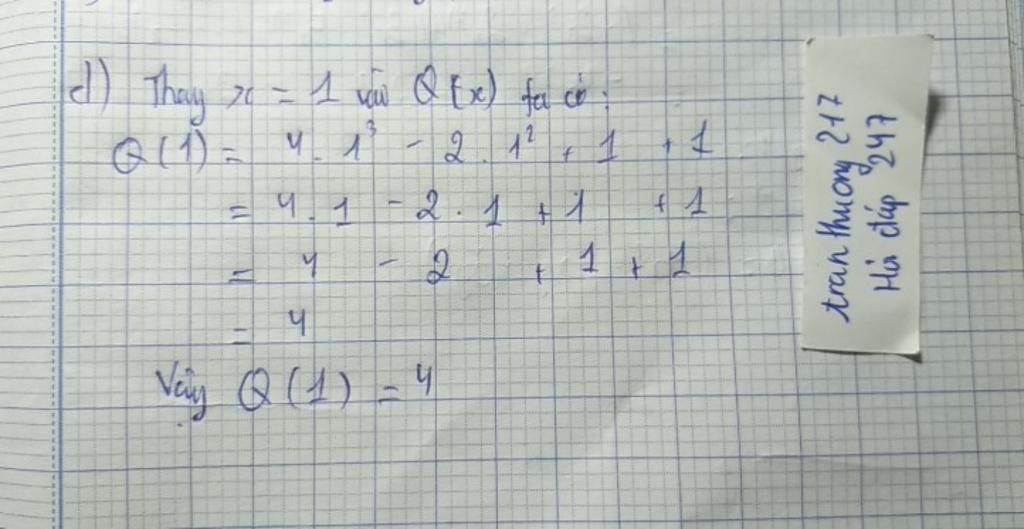 d) Thay x = 1 vào Q(x) ta có:
Q(1) = 4 . 1³ - 2 . 1² + 1 + 1
= 4 . 1 - 2 . 1 + 1 + 1
= 4 - 2 + 1 + 1
= 4
Vậy Q(1) = 4
tranthuong 217
Hỏi đáp 247